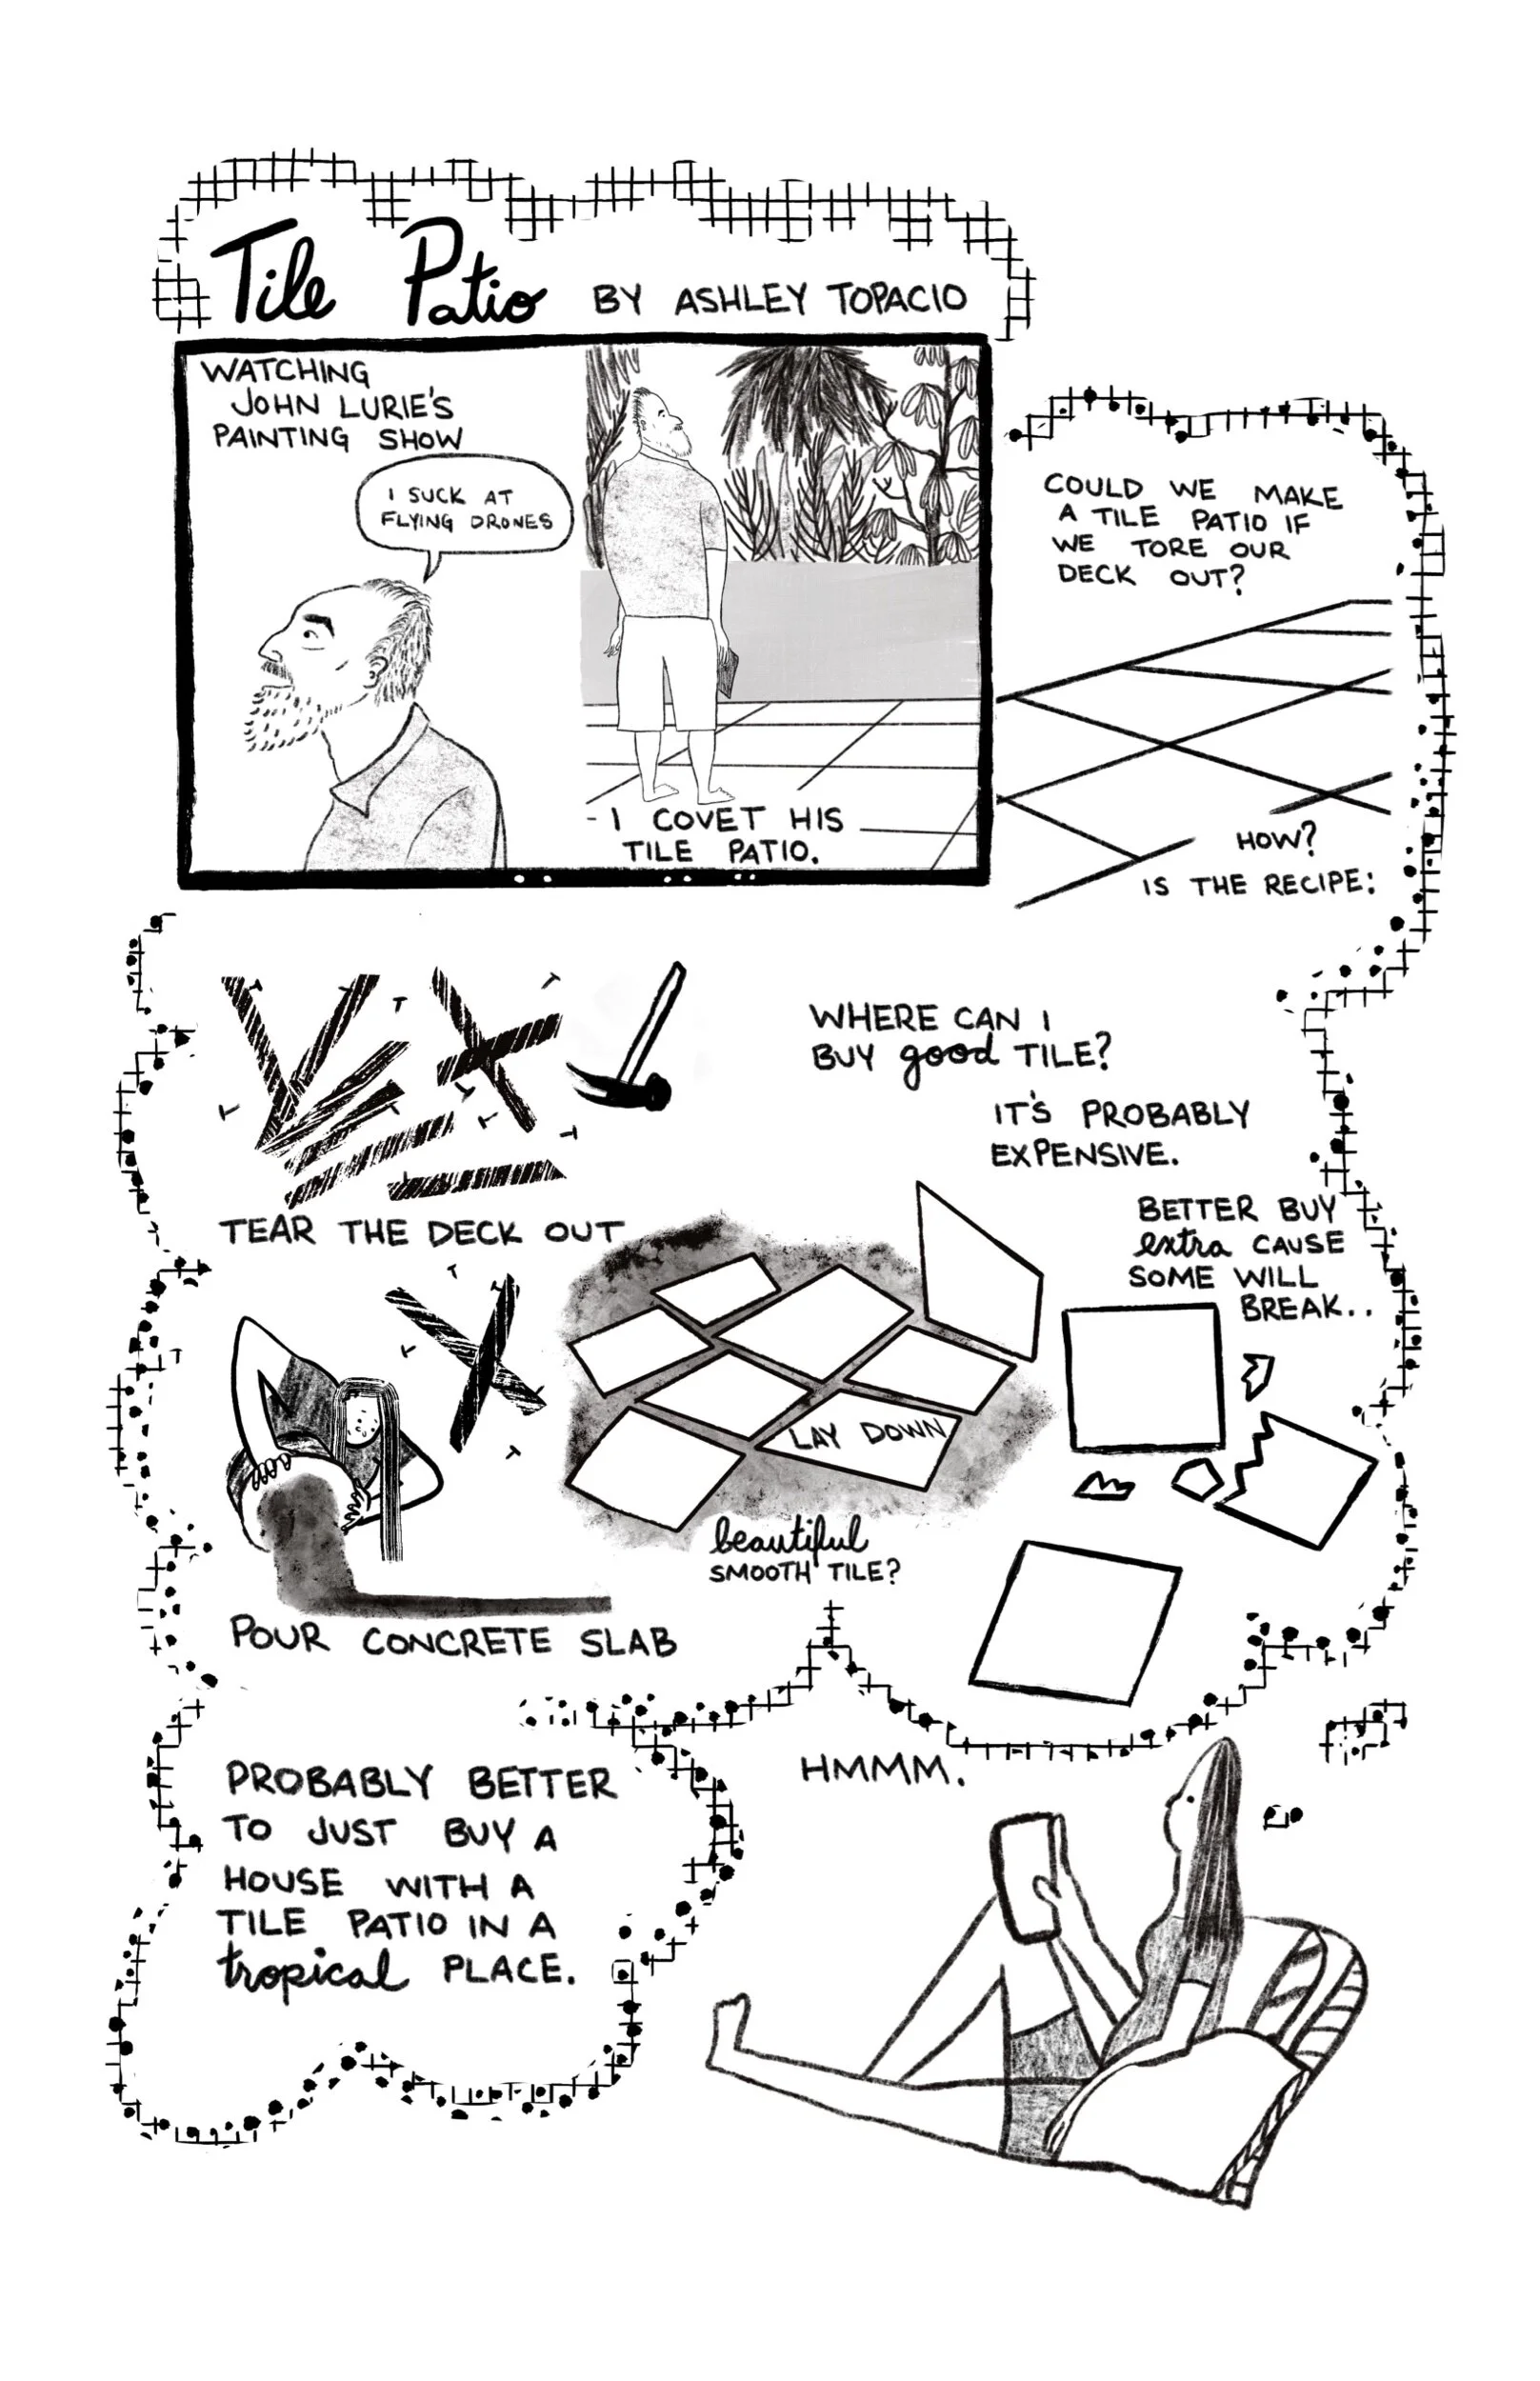 Tile Patio BY ASHLEY TOPACIO
WATCHING
JOHN LURIE'S
PAINTING SHOW
I SUCK AT
FLYING DRONES
I COVET HIS
TILE PATIO.
COULD WE MAKE
A TILE PATIO IF
WE TORE OUR
DECK OUT?
HOW?
IS THE RECIPE:
TEAR THE DECK OUT
WHERE CAN I
BUY good TILE?
IT'S PROBABLY
EXPENSIVE.
BETTER BUY
extra CAUSE
SOME WILL
BREAK..
POUR CONCRETE SLAB
LAY DOWN
beautiful
SMOOTH TILE?
PROBABLY BETTER
TO JUST BUY A
HOUSE WITH A
TILE PATIO IN A
tropical PLACE.
HMMM.